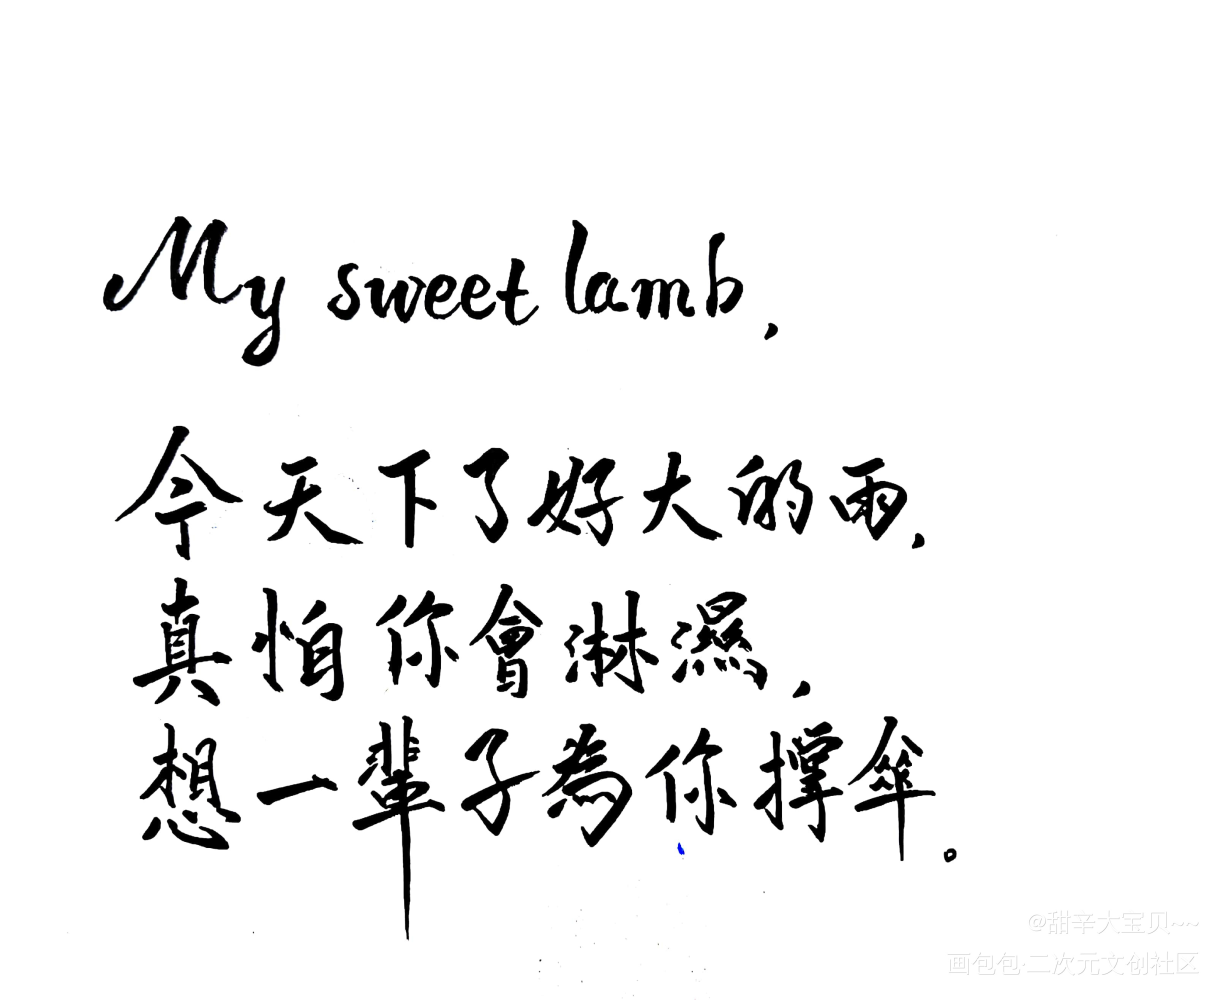 My sweet lamb,
今天下了好大的雨,
真怕你會淋濕,
想一輩子為你撐傘。
@甜辛大宝贝~~
画包包·二次元文创社区